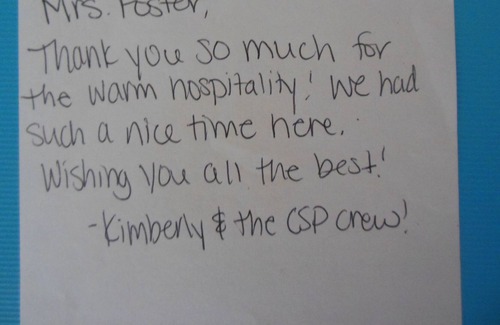 Mrs. Foster,
Thank you so much for
the warm hospitality! We had
such a nice time here.
Wishing you all the best!
-Kimberly & the CSP crew!